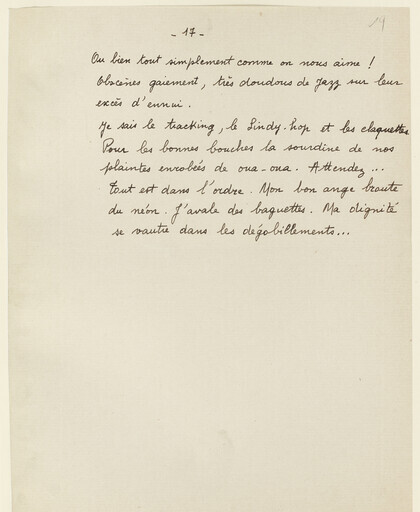 - 17 -
19
Ou bien tout simplement comme on nous aime !
Obscènes gaiement, très doudous de jazz sur leur
excès d'ennui.
Je sais le tracking, le Lindy-hop et les claquettes
Pour les bonnes bouches la sourdine de nos
plaintes enrobés de oua-oua. Attendez...
Tout est dans l'ordre. Mon bon ange broute
du néon. J'avale des baguettes. Ma dignité
se vautre dans les dégobillements...